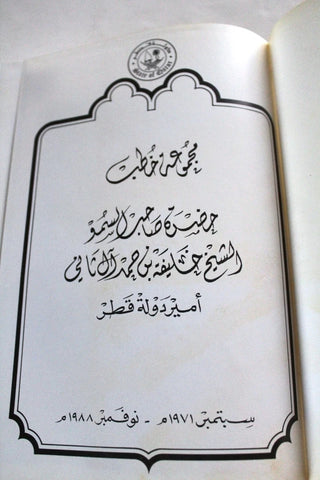 State of Qatar
مجموعة خطب
حضرة صاحب السمو
الشيخ خليفة بن حمد آل ثاني
أمير دولة قطر
سبتمبر ١٩٧١م - نوفمبر ١٩٨٨م